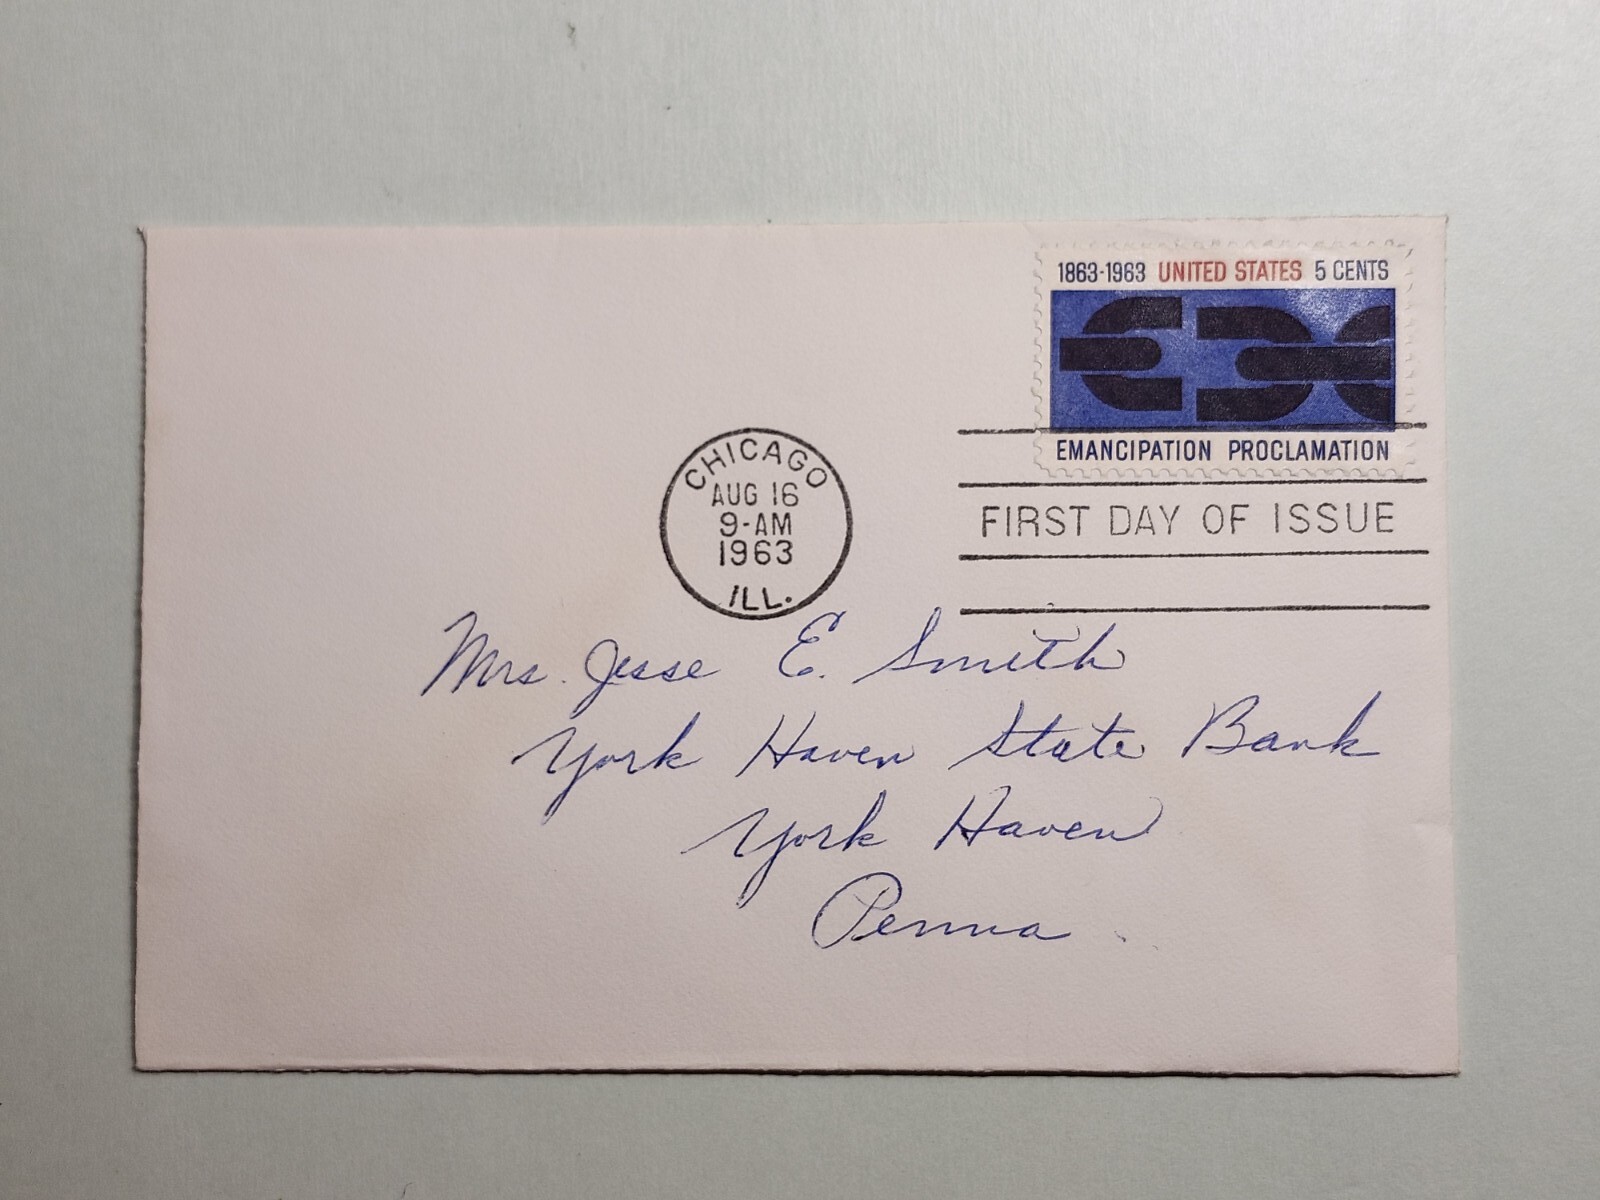 1863-1963 UNITED STATES 5 CENTS
EMANCIPATION PROCLAMATION
CHICAGO
AUG 16
9-AM
1963
ILL.
FIRST DAY OF ISSUE
Mrs. Jesse E. Smith
York Haven State Bank
York Haven
Penna